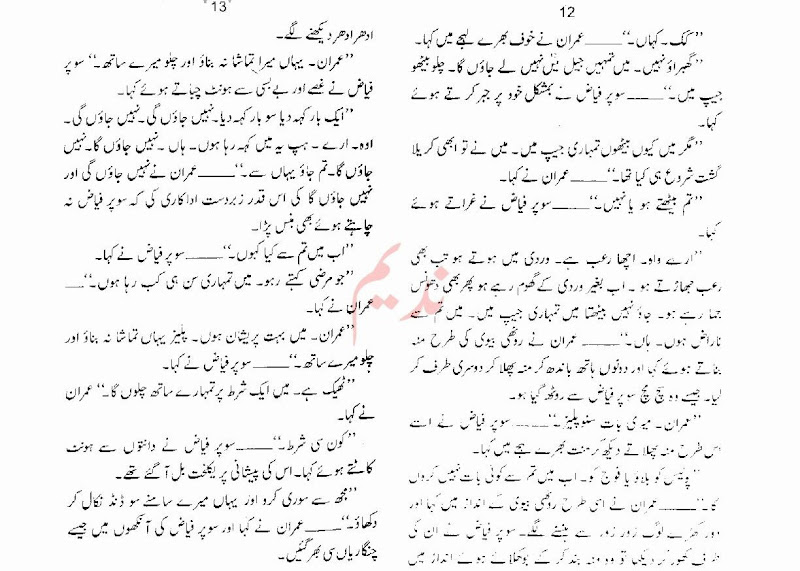 12
’’کک۔ کہاں۔‘‘____عمران نے خوف بھرے لہجے میں کہا۔
’’گھبراؤ نہیں۔ میں تمہیں جیل میں نہیں لے جاؤں گا۔ چلو بیٹھو
جیپ میں۔‘‘____سوپر فیاض نے بمشکل خود پر جبر کرتے ہوئے
کہا۔
’’مگر میں کیوں بیٹھوں تمہاری جیپ میں۔ میں نے تو ابھی کریلا
گشت شروع ہی کیا تھا۔‘‘____عمران نے کہا۔
’’تم بیٹھتے ہو یا نہیں۔‘‘____سوپر فیاض نے غراتے ہوئے
کہا۔
’’ارے واہ۔ اچھا رعب ہے۔ وردی میں ہوتے ہو تب بھی
رعب جھاڑتے ہو۔ اب بغیر وردی کے گھوم رہے ہو پھر بھی دھونس
جما رہے ہو۔ جاؤ نہیں بیٹھتا میں تمہاری جیپ میں۔ میں تم سے
ناراض ہوں۔ ہاں۔‘‘____عمران نے روٹھی بیوی کی طرح منہ
بناتے ہوئے کہا اور دونوں ہاتھ باندھ کر منہ پھلا کر دوسری طرف کر
لیا۔ جیسے وہ سچ مچ سوپر فیاض سے روٹھ گیا ہو۔
’’عمران۔ میری بات سنو پلیز۔‘‘____سوپر فیاض نے اسے
اس طرح منہ پھلاتے دیکھ کر منت بھرے لہجے میں کہا۔
’’پولیس کو بلاؤ یا فوج کو۔ اب میں تم سے کوئی بات نہیں کروں
گا۔‘‘____عمران نے اسی طرح روٹھی بیوی کے انداز میں کہا اور
دور کھڑے لوگ زور زور سے ہنسنے لگے۔ سوپر فیاض نے ان کی
طرف گھور کر دیکھا تو وہ منہ بند کر کے بوکھلائے ہوئے انداز میں
13
ادھر ادھر دیکھنے لگے۔
’’عمران۔ یہاں میرا تماشا نہ بناؤ اور چلو میرے ساتھ۔‘‘ سوپر
فیاض نے غصے اور بے بسی سے ہونٹ چباتے ہوئے کہا۔
’’ایک بار کہہ دیا سو بار کہہ دیا۔ نہیں جاؤں گی۔ نہیں جاؤں گی۔
اوہ۔ ارے۔ ہپ یہ میں کہہ رہا ہوں۔ ہاں۔ نہیں جاؤں گا۔ نہیں
جاؤں گا۔ تم جاؤ یہاں سے۔‘‘____عمران نے نہیں جاؤں گی اور
نہیں جاؤں گا کی اس قدر زبردست اداکاری کی کہ سوپر فیاض نہ
چاہتے ہوئے بھی ہنس پڑا۔
’’اب میں تم سے کیا کہوں۔‘‘____سوپر فیاض نے کہا۔
’’جو مرضی کہتے رہو۔ میں تمہاری سن ہی کب رہا ہوں۔‘‘____
عمران نے کہا۔
’’عمران۔ میں بہت پریشان ہوں۔ پلیز یہاں تماشا نہ بناؤ اور
چلو میرے ساتھ۔‘‘____سوپر فیاض نے کہا۔
’’ٹھیک ہے۔ میں ایک شرط پر تمہارے ساتھ چلوں گا۔‘‘ عمران
نے کہا۔
’’کون سی شرط۔‘‘____سوپر فیاض نے دانتوں سے ہونٹ
کاٹتے ہوئے کہا۔ اس کی پیشانی پر یکلخت بل آ گئے تھے۔
’’مجھ سے سوری کرو اور یہاں میرے سامنے سو ڈنڈ نکال کر
دکھاؤ۔‘‘____عمران نے کہا اور سوپر فیاض کی آنکھوں میں جیسے
چنگاریاں سی بھر گئیں۔
ندیم